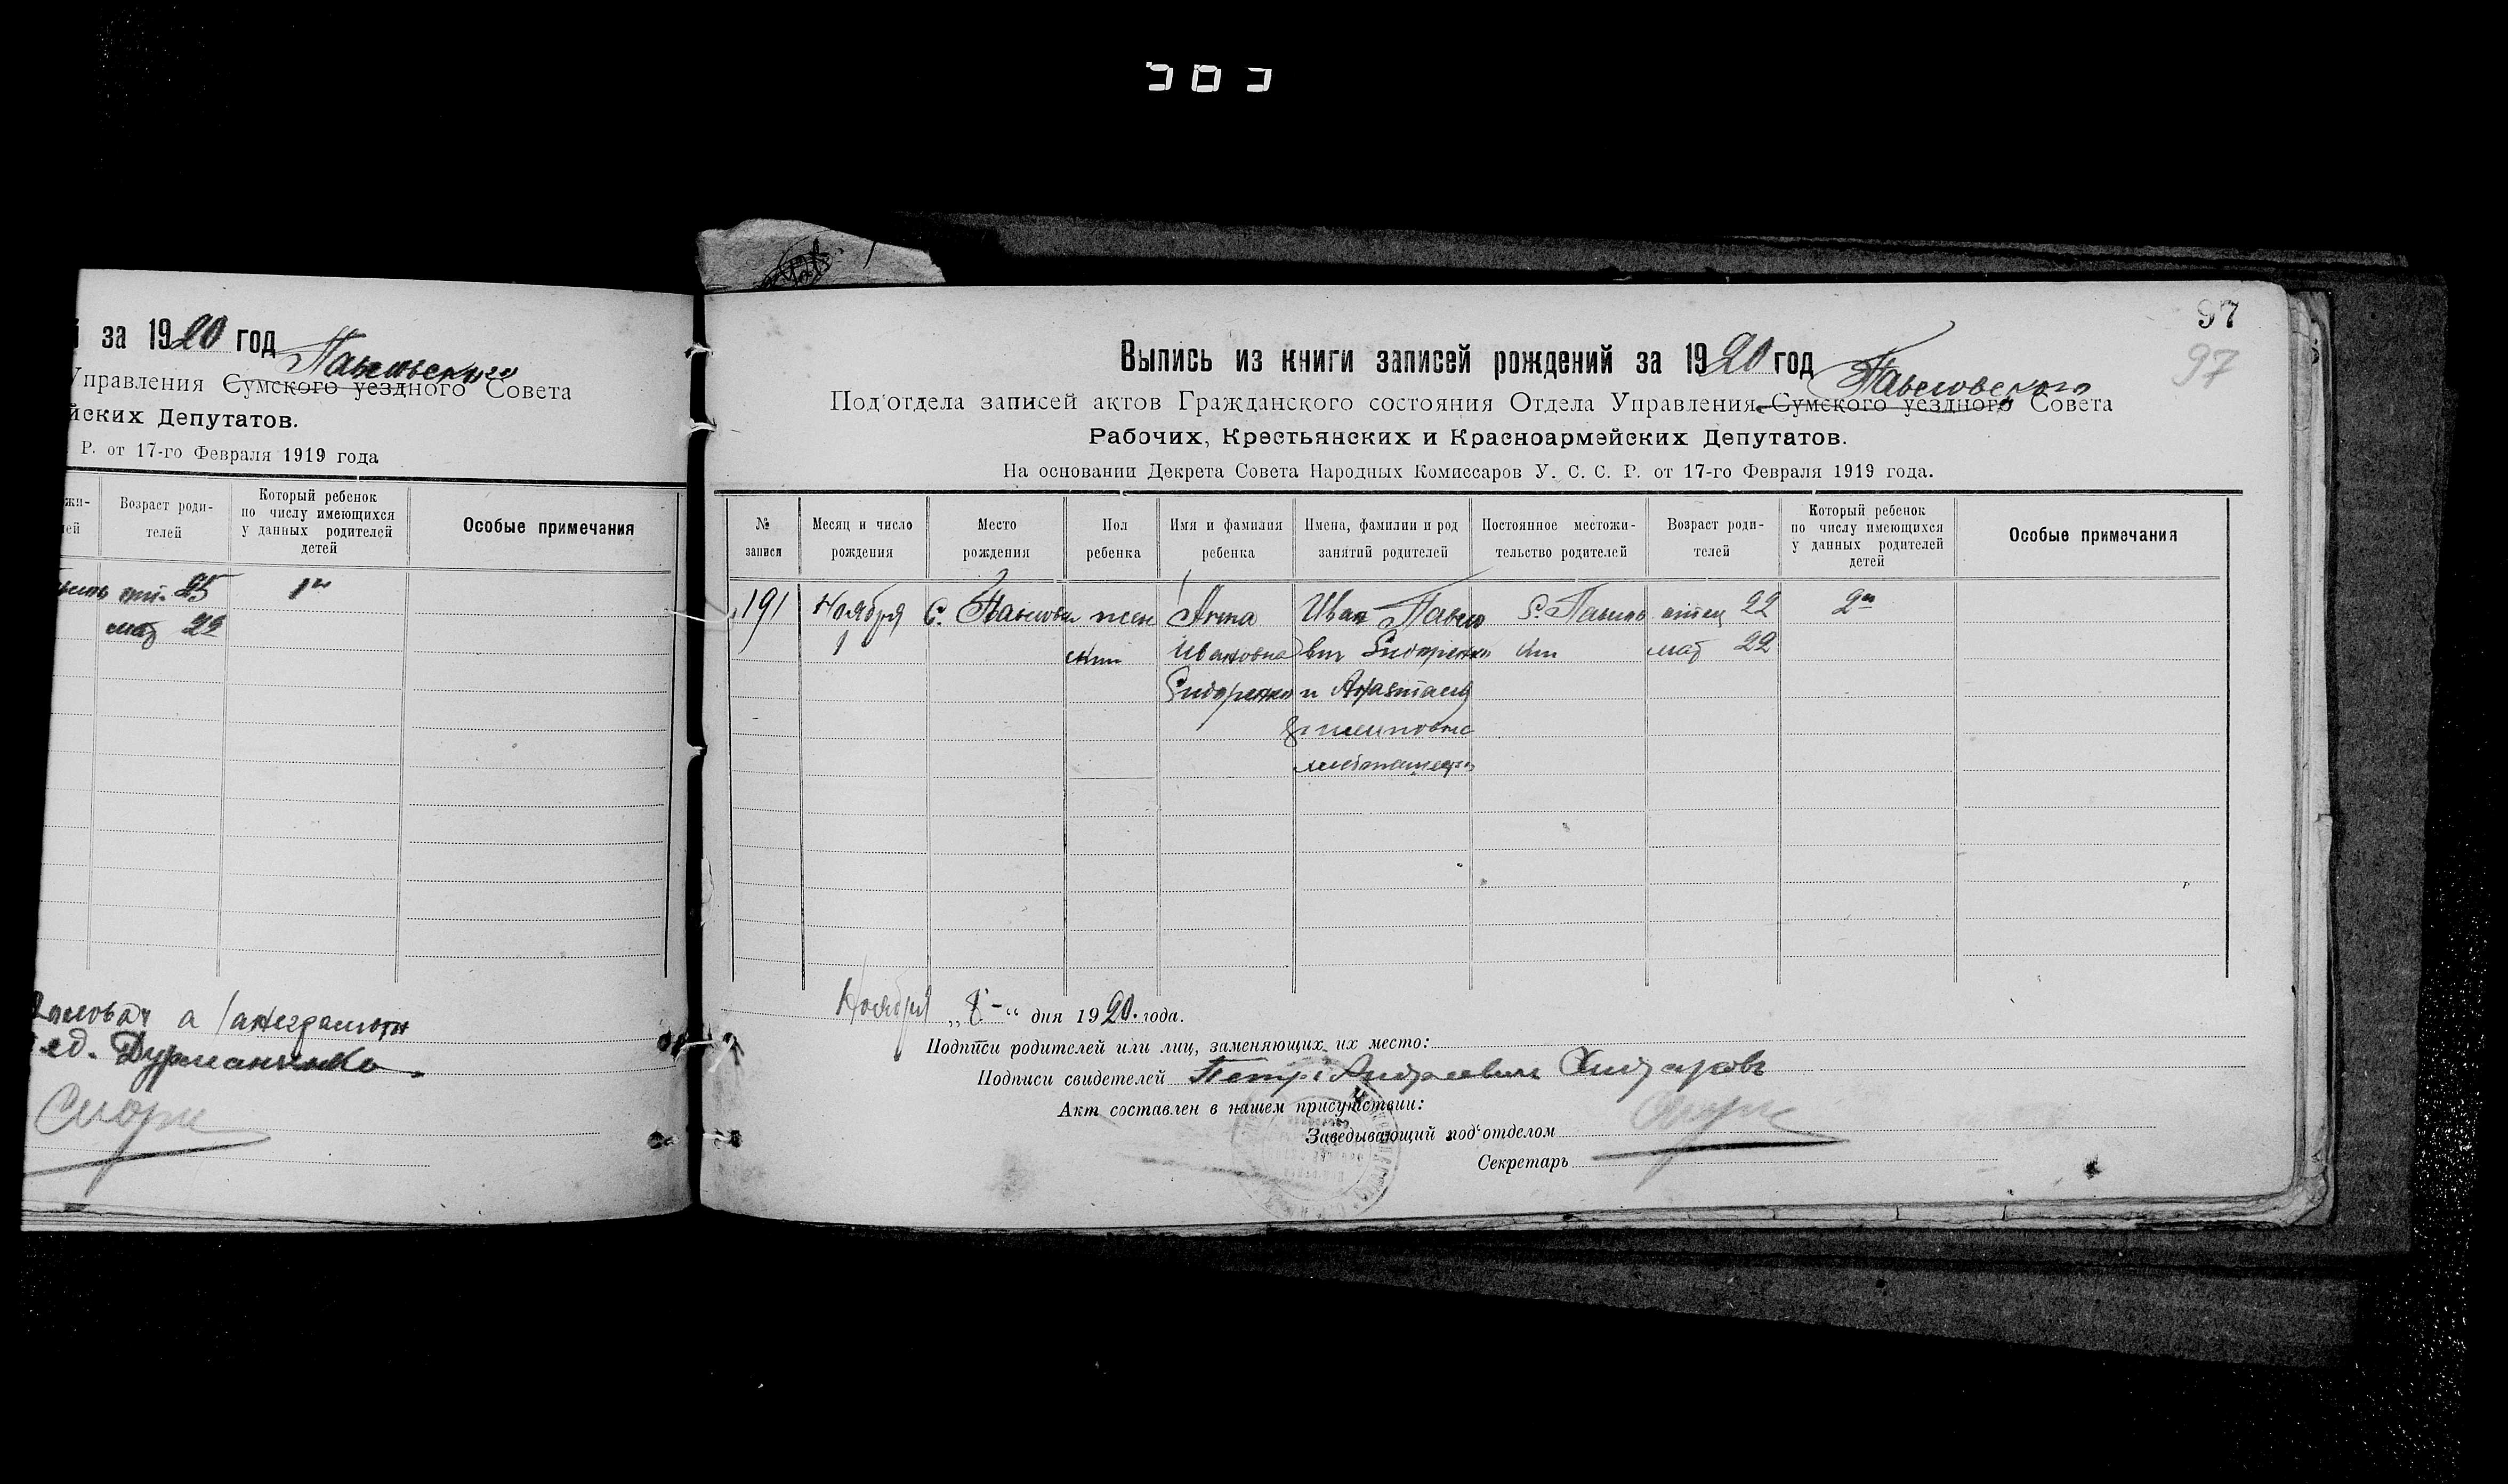 за 1920 год
Павловского
Управления Сумского уездного Совета
йских Депутатов.
Р. от 17-го Февраля 1919 года
Возраст роди-
телей
Который ребенок
по числу имеющихся
у данных родителей
детей
Особые примечания
25
мат 22
Сидор
97
97
Выпись из книги записей рождений за 1920 год
Павловского
Под'отдела записей актов Гражданского состояния Отдела Управления Сумского уездного Совета
Рабочих, Крестьянских и Красноармейских Депутатов.
На основании Декрета Совета Народных Комиссаров У. С. С. Р. от 17-го Февраля 1919 года.
№ записи
Месяц и число рождения
Место рождения
Пол ребенка
Имя и фамилия ребенка
Имена, фамилии и род занятий родителей
Постоянное местожи-
тельство родителей
Возраст роди-
телей
Который ребенок
по числу имеющихся
у данных родителей
детей
Особые примечания
191 Ноября С. Павловки жен Анна Иван Павло С. Павлов отец 22 2й
1 ский Ивановна вич Сидоренко ки мат 22
Сидоренко и Анастасия
Ноября „8" дня 1920. года.
Подписи родителей или лиц, заменяющих их место:
Подписи свидетелей Петр Андреевич
Акт составлен в нашем присутствии:
Заведывающий под'отделом
Секретарь